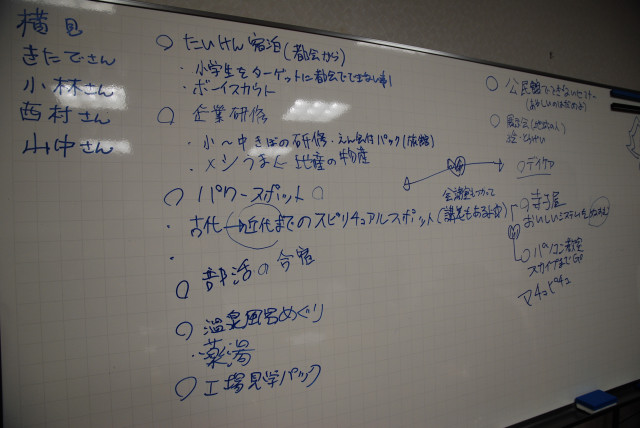 横見
きたでさん
小林さん
西村さん
山中さん
○ たいけん宿泊(都会から)
・小学生をターゲットに都会でできない事!
・ボーイスカウト
○ 企業研修
・小〜中きぼの研修・えん会付パック(旅館)
・メシうまく 地産の物産
○ パワースポット
・古代→近代までのスピリチュアルスポット(講苑もあるよ)
○ 部活の合宿
○ 温泉風呂めぐり
・薬湯
○ 工場見学パック
○ 公民館でできないセミナー
○ 展示会
○デイケア
○寺子屋
おいしいシステムを
○パソコン教室
スカイプまで
マチュピチュ